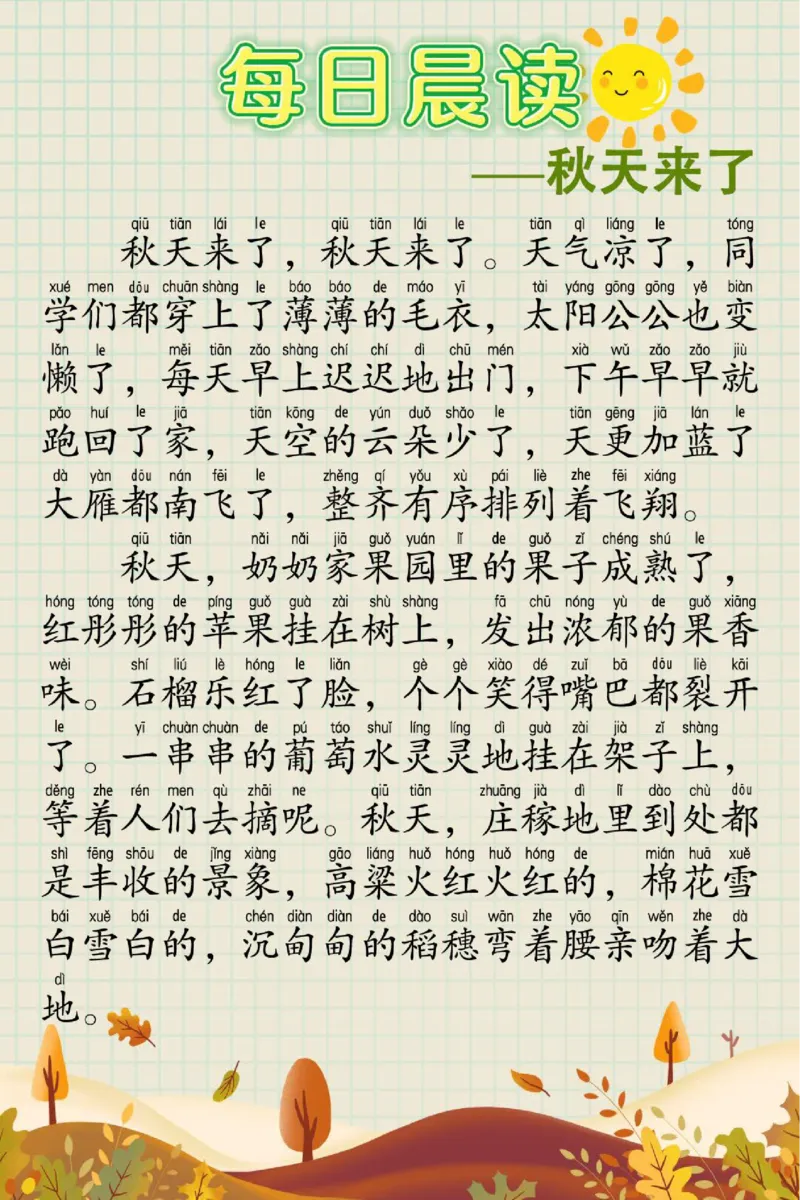 每日晨读
——秋天来了
qiū tiān lái le qiū tiān lái le tiān qì liáng le tóng
秋天来了，秋天来了。天气凉了，同
xué men dōu chuān shàng le báo báo de máo yī tài yáng gōng gōng yě biàn
学们都穿上了薄薄的毛衣，太阳公公也变
lǎn le měi tiān zǎo shàng chí chí dì chū mén xià wǔ zǎo zǎo jiù
懒了，每天早上迟迟地出门，下午早早就
pǎo huí le jiā tiān kōng de yún duǒ shǎo le tiān gēng jiā lán le
跑回了家，天空的云朵少了，天更加蓝了
dà yàn dōu nán fēi le zhěng qí yǒu xù pái liè zhe fēi xiáng
大雁都南飞了，整齐有序排列着飞翔。
qiū tiān nǎi nǎi jiā guǒ yuán lǐ de guǒ zǐ chéng shú le
秋天，奶奶家果园里的果子成熟了，
hóng tóng tóng de píng guǒ guà zài shù shàng fā chū nóng yù de guǒ xiāng
红彤彤的苹果挂在树上，发出浓郁的果香
wèi shí liú lè hóng le liǎn gè gè xiào dé zuǐ bā dōu liè kāi
味。石榴乐红了脸，个个笑得嘴巴都裂开
le yī chuàn chuàn de pú táo shuǐ líng líng dì guà zài jià zǐ shàng
了。一串串的葡萄水灵灵地挂在架子上，
děng zhe rén men qù zhāi ne qiū tiān zhuāng jià dì lǐ dào chù dōu
等着人们去摘呢。秋天，庄稼地里到处都
shì fēng shōu de jǐng xiàng gāo liáng huǒ hóng huǒ hóng de mián huā xuě
是丰收的景象，高粱火红火红的，棉花雪
bái xuě bái de chén diàn diàn de dào suì wān zhe yāo qīn wěn zhe dà
白雪白的，沉甸甸的稻穗弯着腰亲吻着大
dì
地。